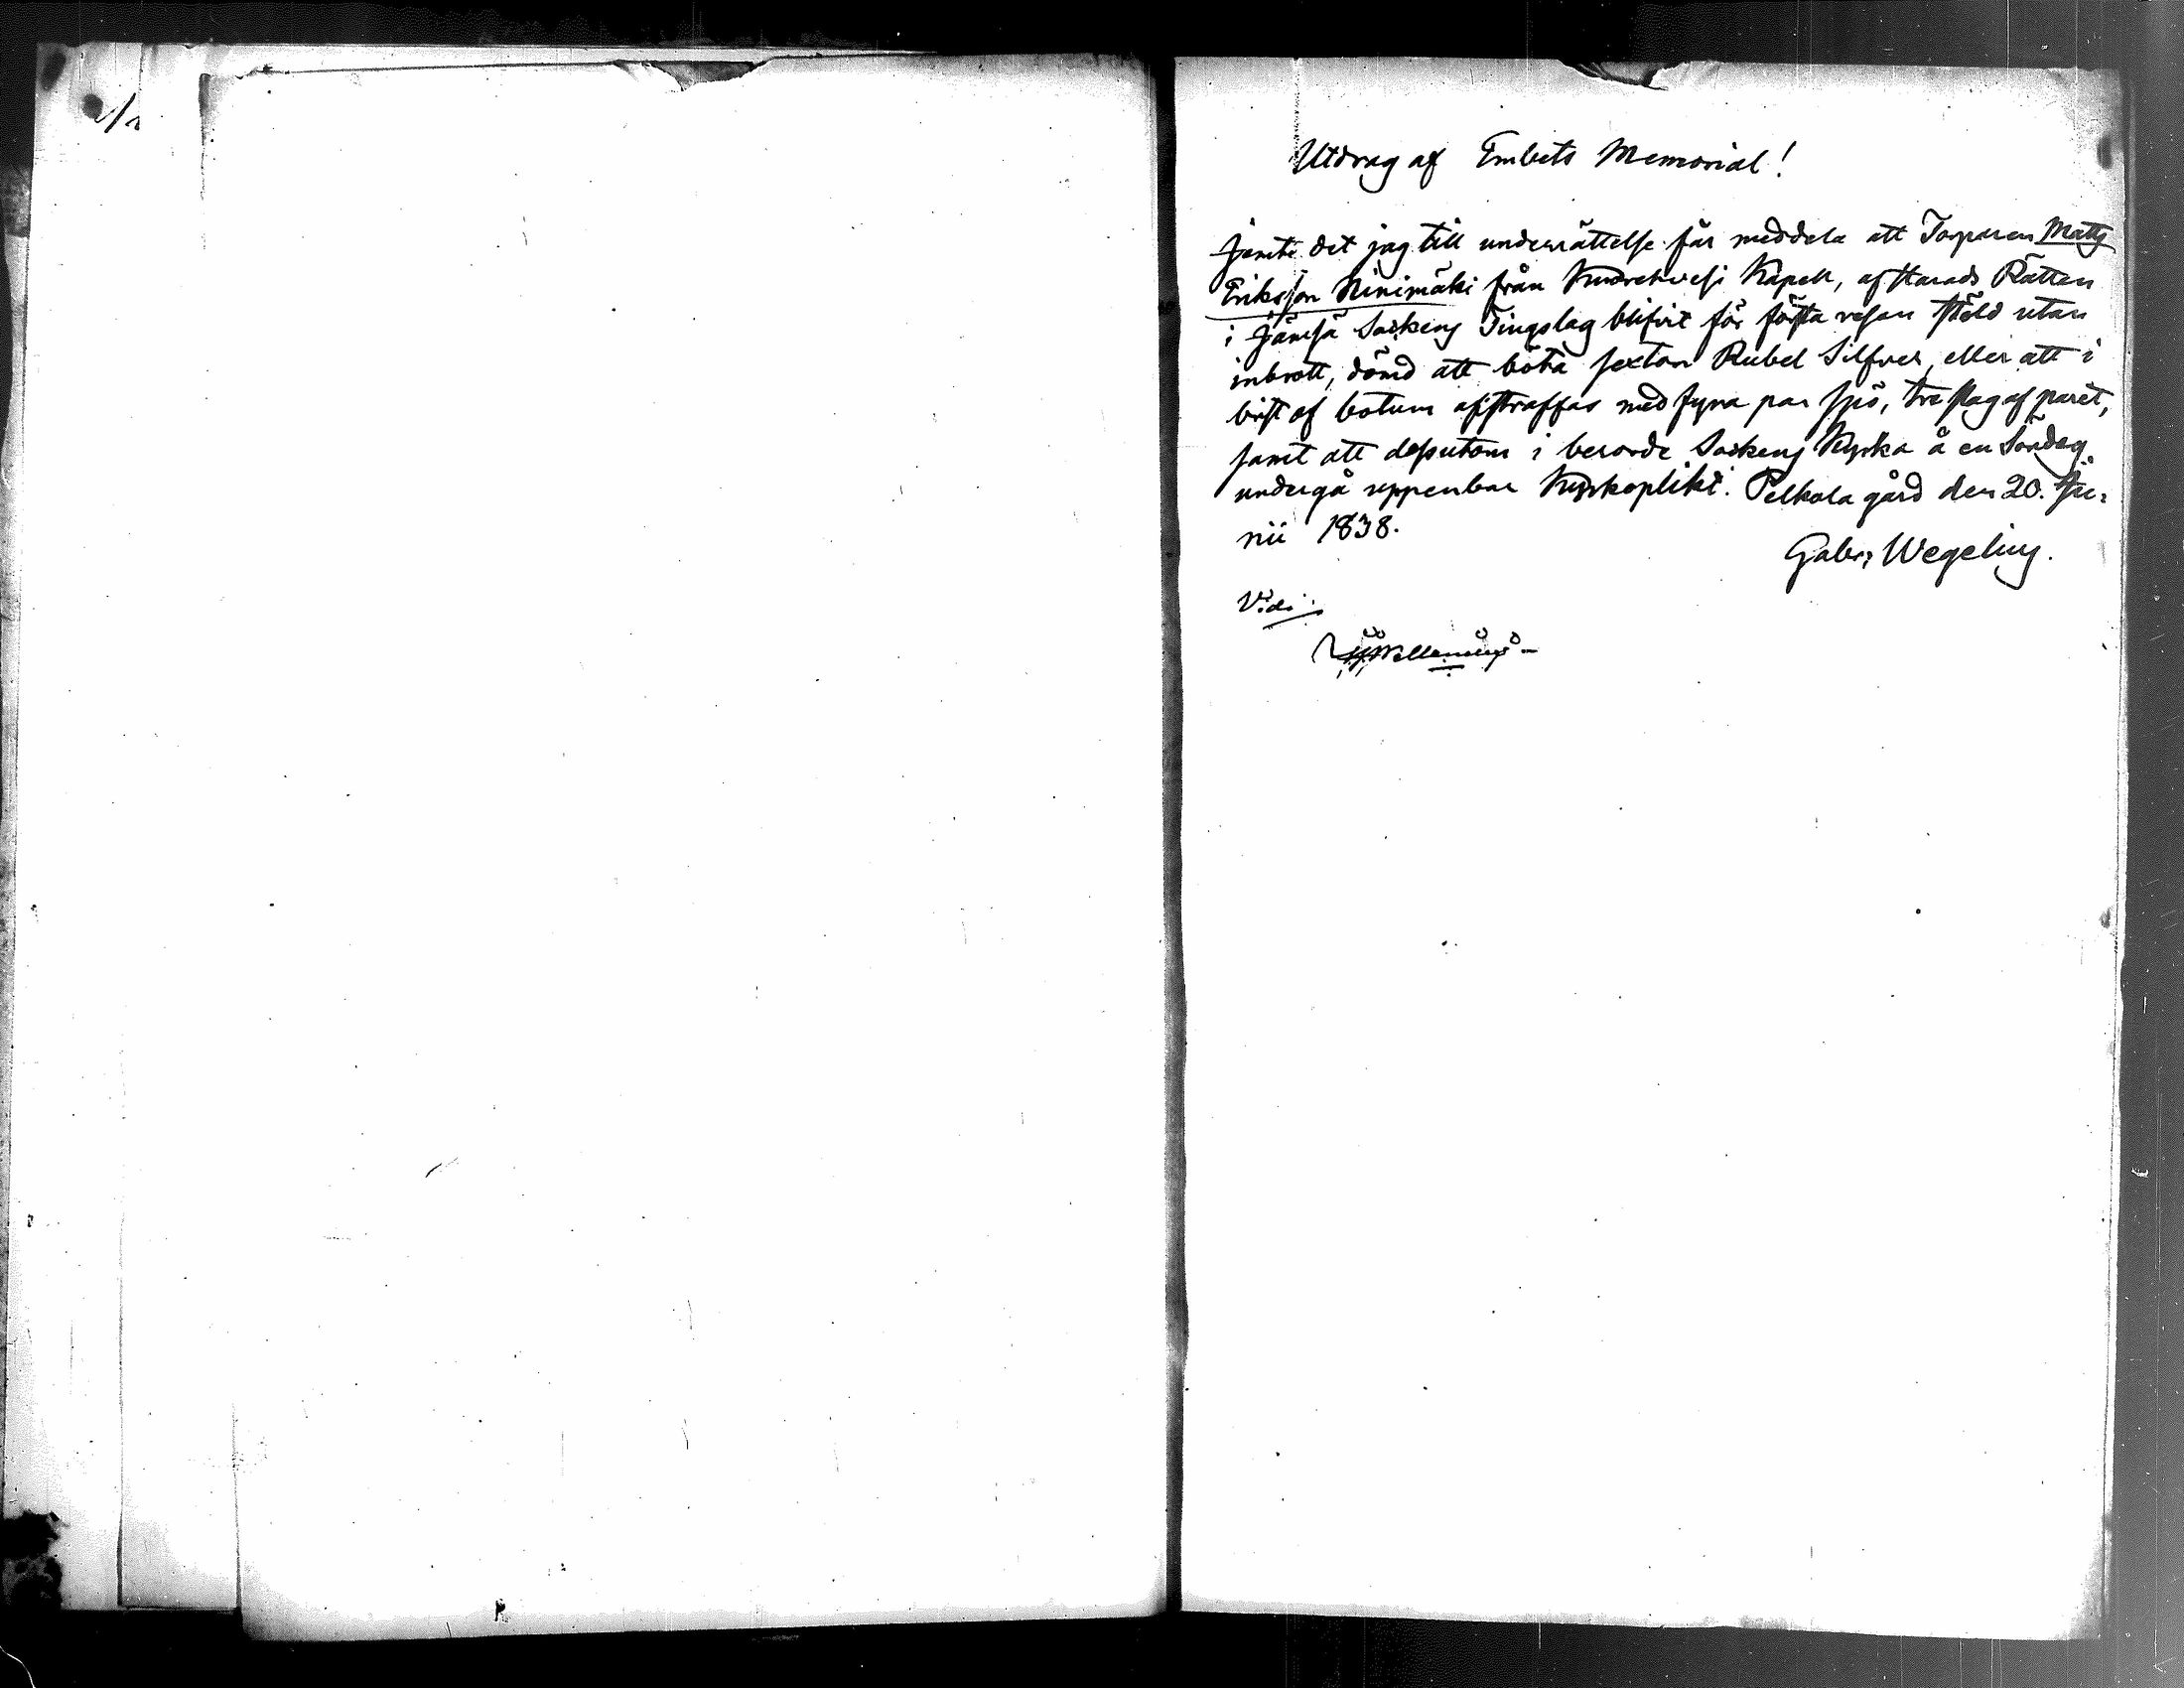 Utdrag af Embets Memorial!
Jemte det jag till underrättelse får meddela att Torparen Matts
Eriksson Niinimäki från Kuorehvesi Kapell, af Härads Rätten
i Jämsä Sockens Tingslag blifvit för första resan stöld utan
inbrott, dömd att böta sexton Rubel Silfver, eller att i
brist af botum afstraffas med fyra par spö, tre slag af paret,
samt att dessutom i berörde Sockens Kyrka å en Söndag
undergå uppenbar Kyrkoplikt. Pelkola gård den 20. Ju-
nii 1838.
Gabr: Wegelius.
Vidi